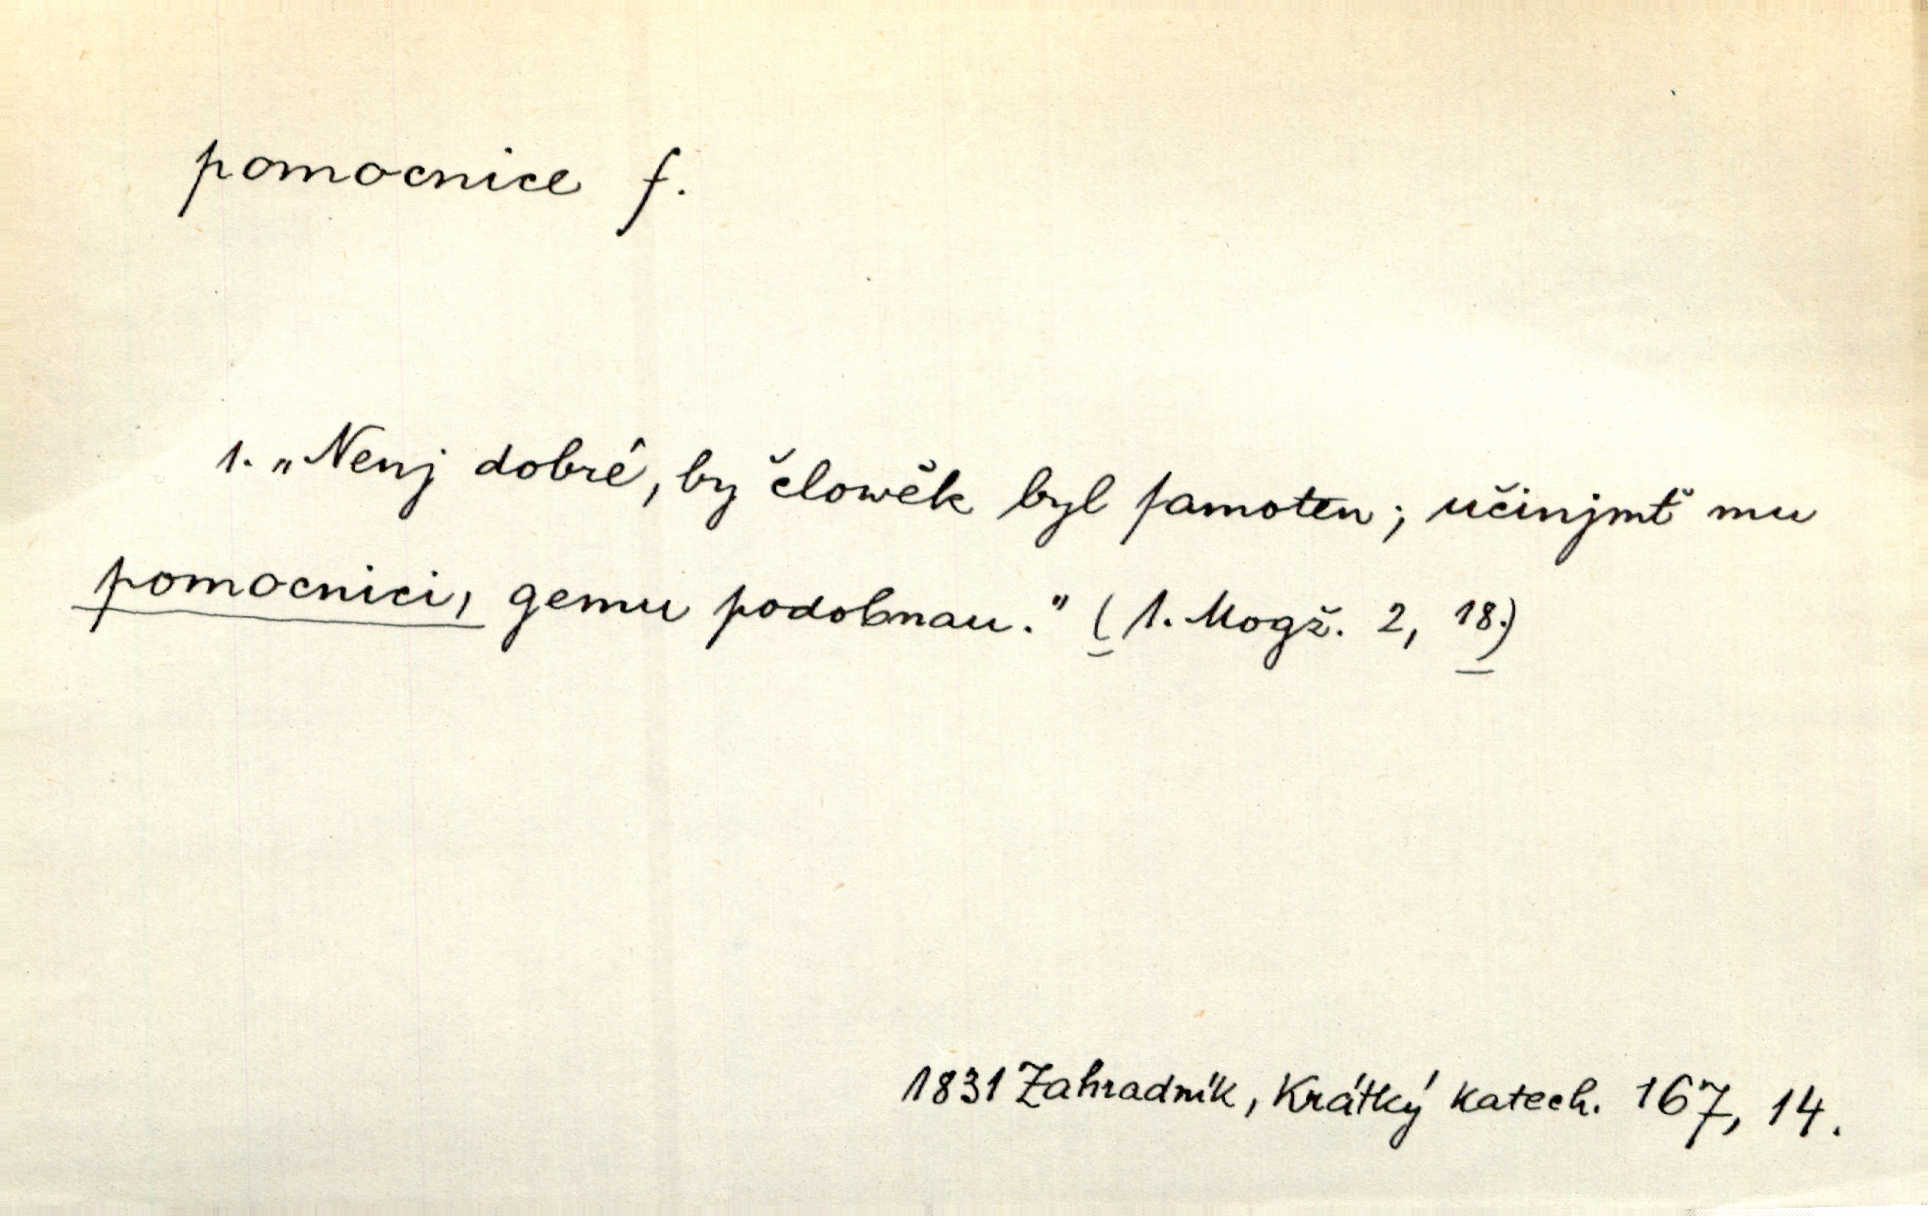 pomocnice f.
1. „Nenj dobré, by člowěk byl ſamoten; učinjmť mu
pomocnici, gemu podobnau." (1. Mogž. 2, 18.)
1831 Zahradník, Krátký katech. 167, 14.